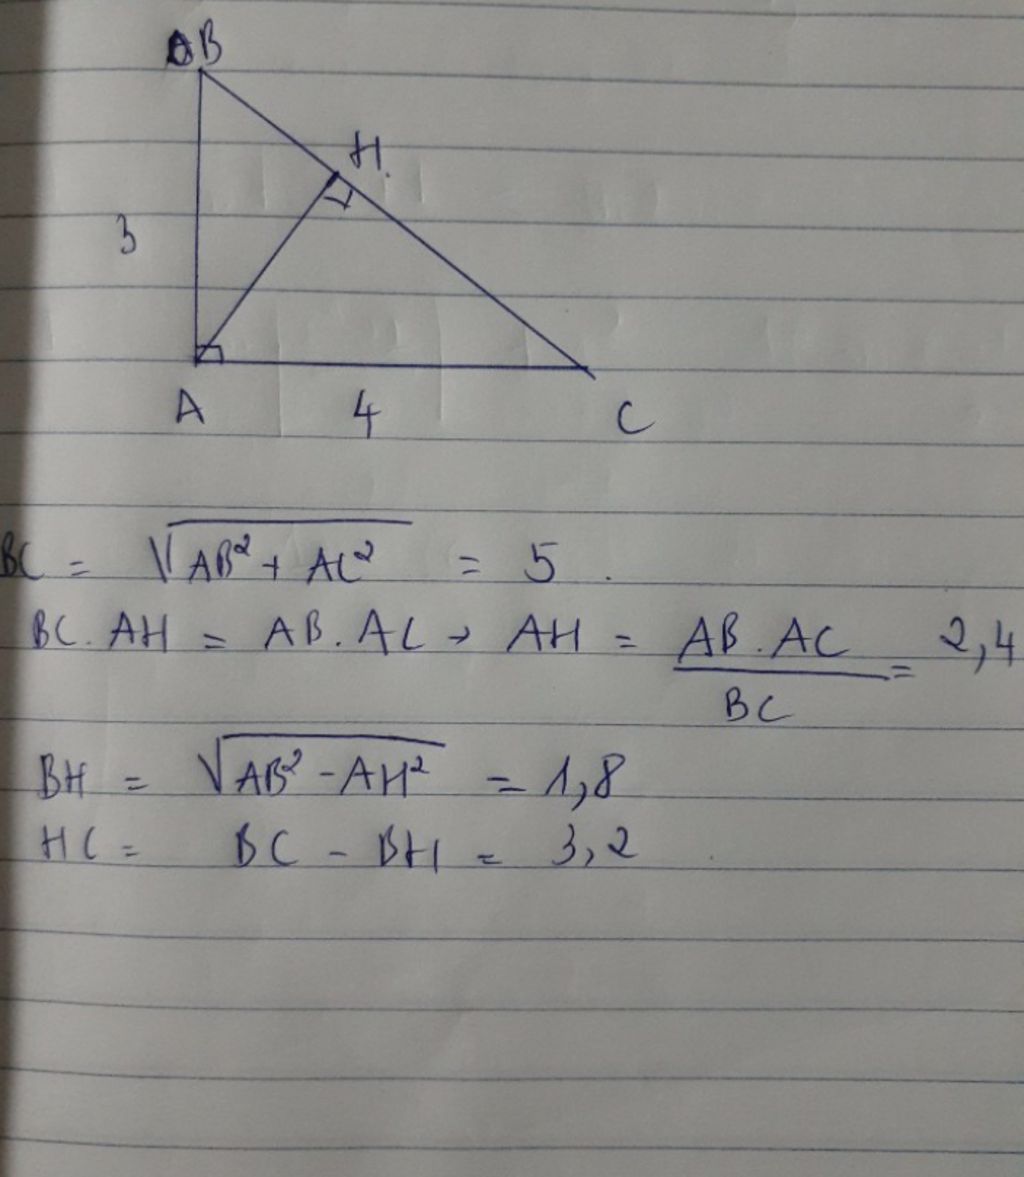 B
H
3
A 4 C
BC = √AB² + AC² = 5 .
BC . AH = AB . AC → AH = AB . AC / BC = 2,4
BH = √AB² - AH² = 1,8
HC = BC - BH = 3,2